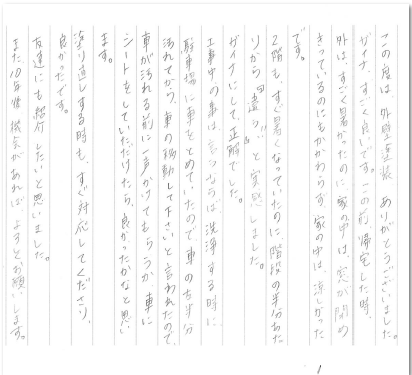 この度は、外壁塗装 ありがとうございました。
ガイナ、すごく良いです。この前 帰宅した時、
外は、すごく暑かったのに家の中は、窓が閉め
きっているのにもかかわらず家の中は、涼しかった
です。
2階も、すぐ暑くなっていたのに階段の半分あた
りから“違う!!”と実感しました。
ガイナにして正解でした。
工事中の事は、言うならば洗浄する時に
駐車場に車をとめていたので車の右半分
汚れてから、車の移動して下さいと言われたので、
車が汚れる前に一声かけてもらうか、車に
シートをしていただけたら、良かったかなと思い
ます。
塗り直しする時も、すぐ対応してくださり、
良かったです。
友達にも紹介したいと思いました。
また10年後 機会があれば よろしくお願いします。